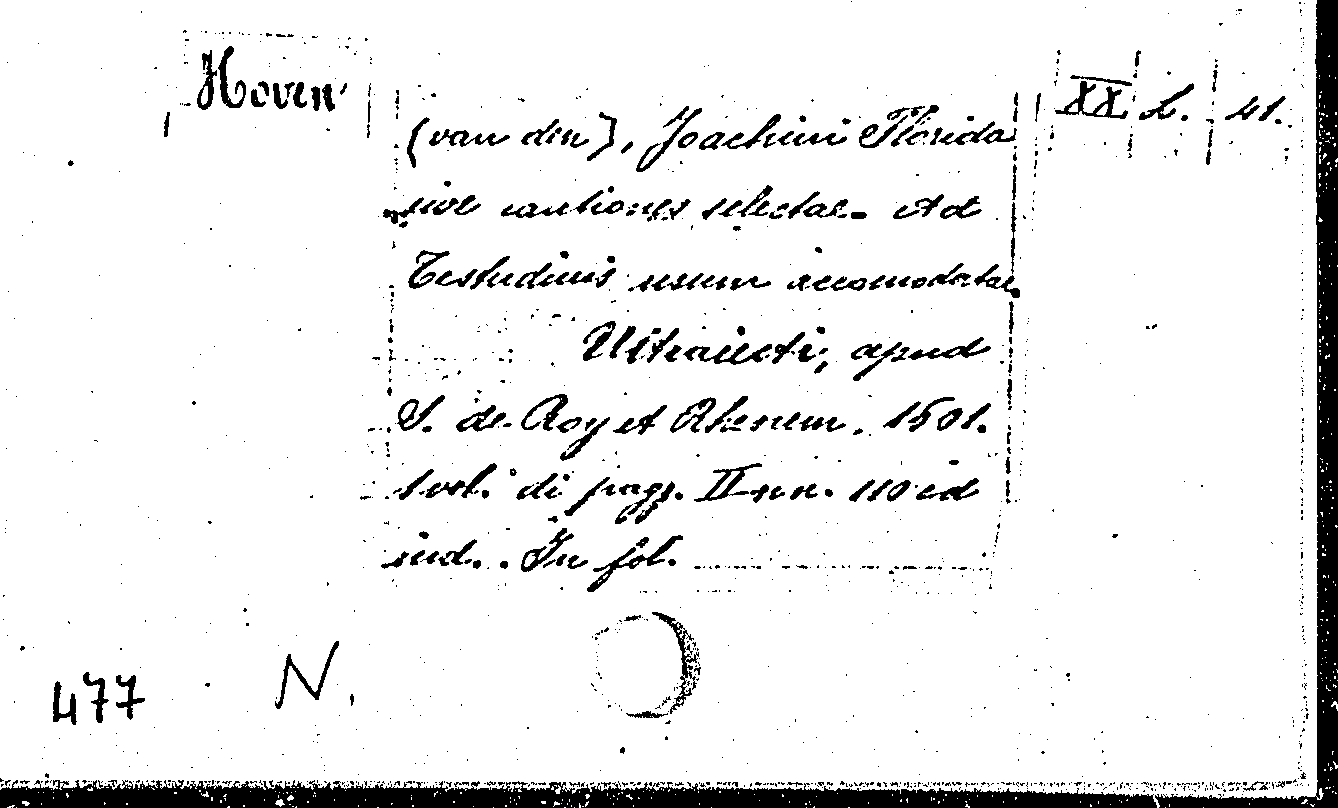 Hoven
XX L. 41.
(van den), Joachimi Florida
sive cantiones selectae. Ad
Testudinis usum accomodatae.
Ultraiecti, apud
S. de Roy et Rhenem. 1601.
1 vol. di pagg. II nn. 110 ed
ind.. In fol.
477 N.